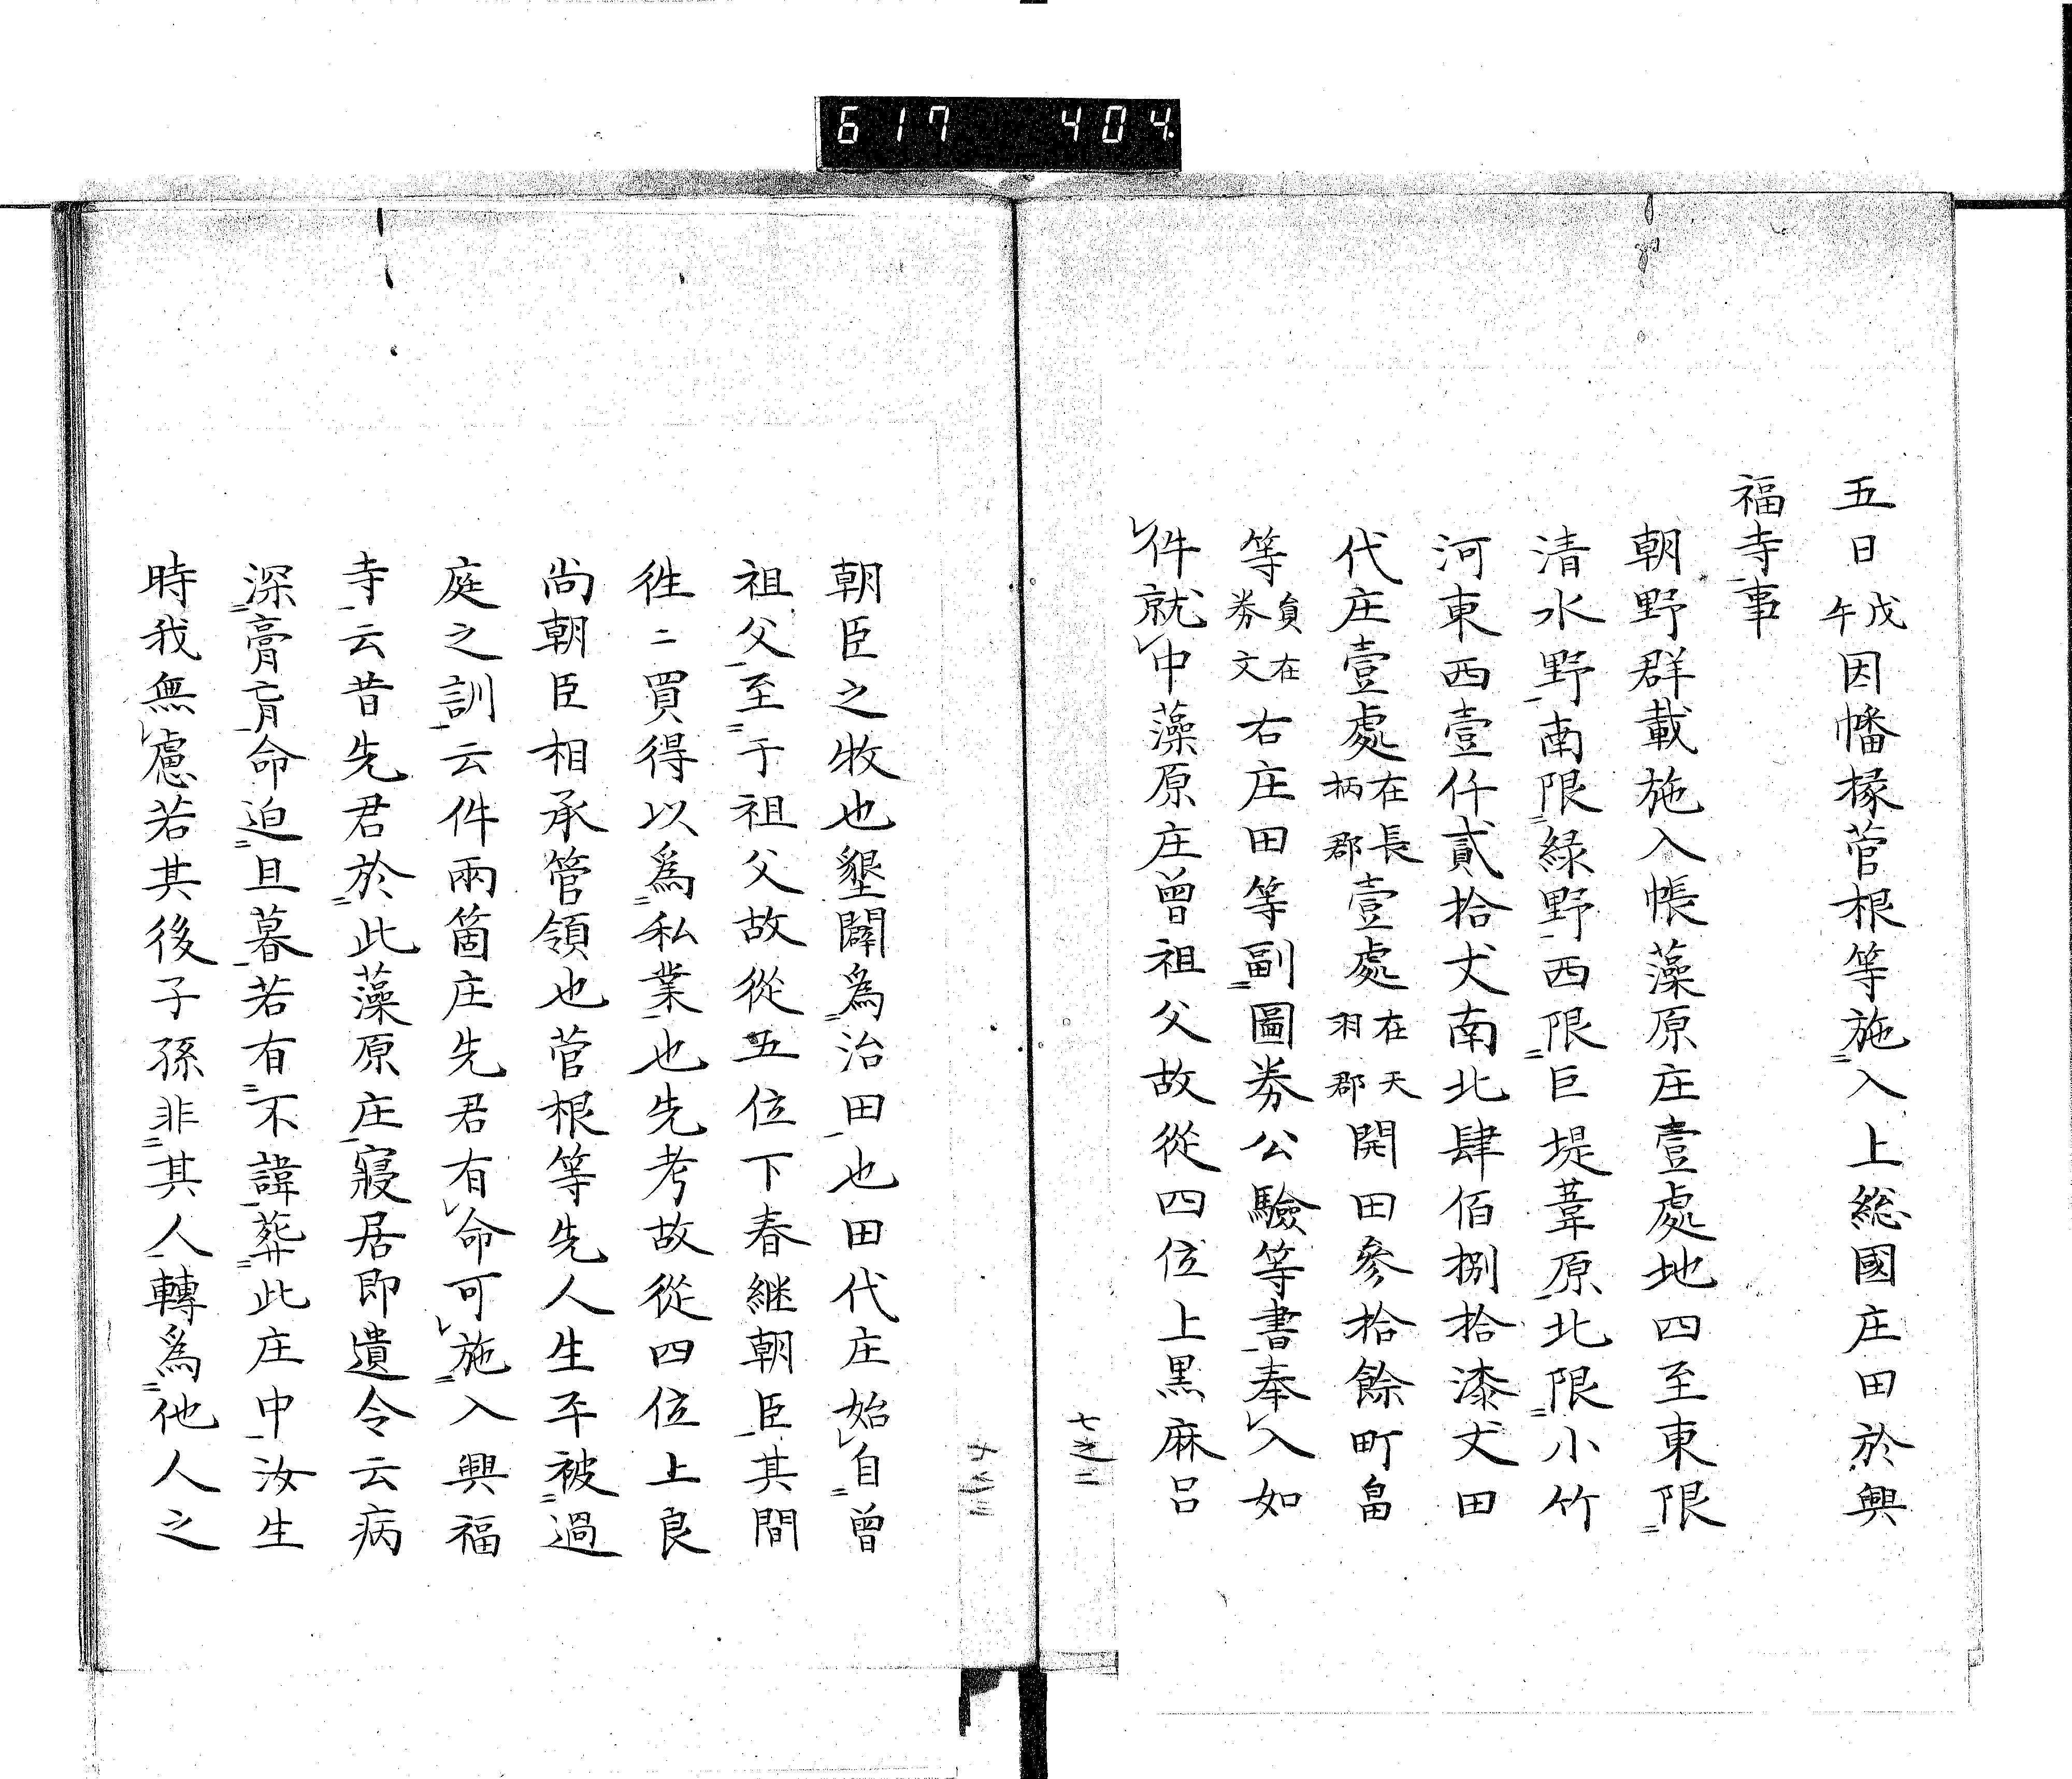 617 404
五日戊午因幡椽菅根等施入上総國庄田於興
福寺事
朝野群載施入帳藻原庄壹處地四至東限
清水野南限緑野西限巨堤葦原北限小竹
河東西壹仟貳拾丈南北肆佰捌拾漆丈田
代庄壹處在長柄郡壹處在天羽郡開田參拾餘町畠
等員在券文右庄田等副圖券公驗等書奉入如
件就中藻原庄曾祖父故從四位上黒麻呂
七之二
朝臣之牧也墾闢爲治田也田代庄始自曾
祖父至于祖父故從五位下春継朝臣其間
徃〻買得以爲私業也先考故從四位上良
尚朝臣相承管領也菅根等先人生平被過
庭之訓云件兩箇庄先君有命可施入興福
寺云昔先君於此藻原庄寢居即遺令云病
深膏肓命迫旦暮若有不諱葬此庄中汝生
時我無慮若其後子孫非其人轉爲他人之